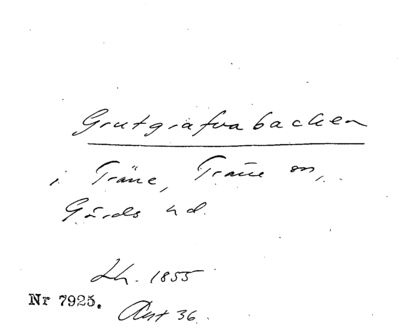 Grutgrafvabacken
i Träne, Träne sn,
Gärds hd.
Lh. 1855
Nr 7925.
Ant 36.